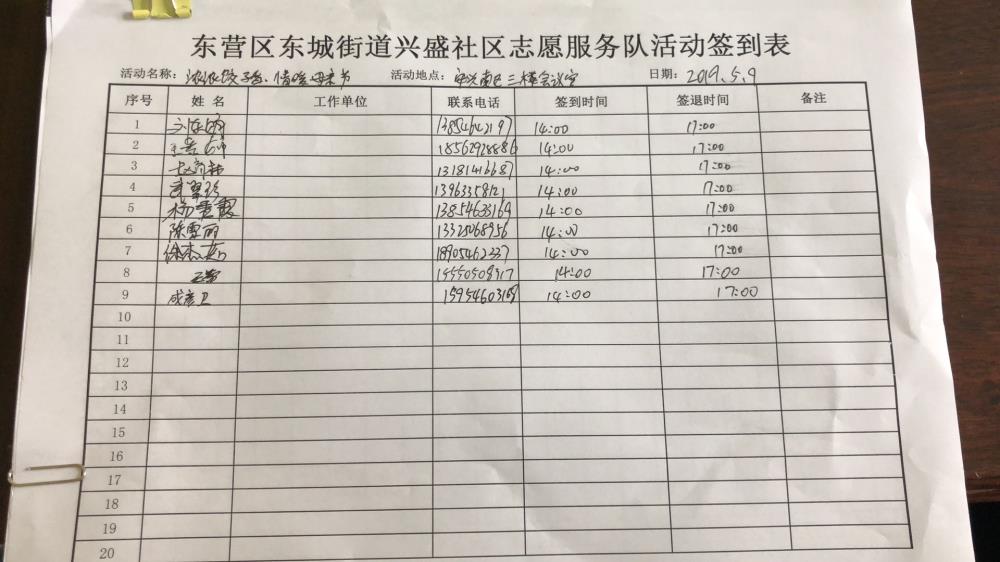 东营区东城街道兴盛社区志愿服务队活动签到表
活动名称：浓浓饺子香、情暖母亲节 活动地点：三楼会议室 日期：2019.5.9
序号 姓名 工作单位 联系电话 签到时间 签退时间 备注
1 13854642197 14:00 17:00
2 18562928886 14:00 17:00
3 13181416687 14:00 17:00
4 13963358121 14:00 17:00
5 杨 13854633169 14:00 17:00
6 陈雪丽 13325068956 14:00 17:00
7 徐杰 18905462337 14:00 17:00
8 14:00 17:00
9 成彦卫 14:00 17:00
10
11
12
13
14
15
16
17
18
19
20